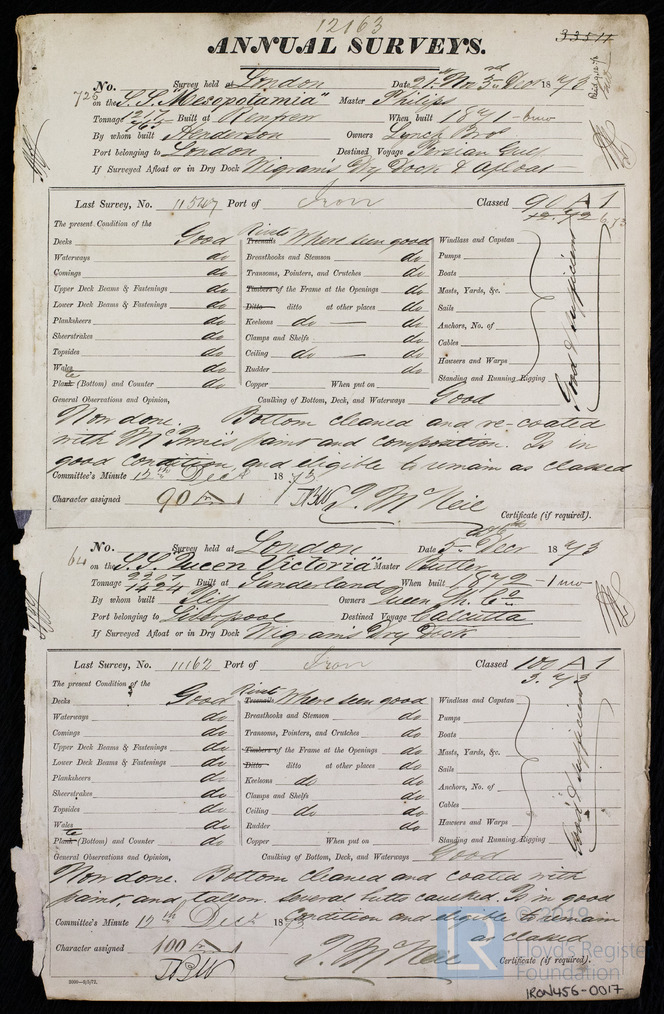 12163
33511
ANNUAL SURVEYS.
No. Survey held at London Date 21st Nov 3rd Decr 1873
725 on the S.S. "Mesopotamia" Master Philips
Tonnage Built at Renfrew When built 1871
By whom built Henderson Owners Lynch Bros
Port belonging to London Destined Voyage Persian Gulf
If Surveyed Afloat or in Dry Dock Wigram's Dry Dock & Afloat
Last Survey, No. 11547 Port of Iron Classed 90 A 1
12.72 6.73
The present Condition of the
Decks Good Rivets Treenails Where seen good Windlass and Capstan
Waterways do Breasthooks and Stemson do Pumps
Comings do Transoms, Pointers, and Crutches do Boats
Upper Deck Beams & Fastenings do Timbers of the Frame at the Openings do Masts, Yards, &c.
Lower Deck Beams & Fastenings do Ditto ditto at other places do Sails
Planksheers do Keelsons do do Anchors, No. of
Sheerstrakes do Clamps and Shelfs do Cables
Topsides do Ceiling do do Hawsers and Warps
Wales do Rudder do Standing and Running Rigging
Good & sufficient
Plate (Bottom) and Counter do Copper When put on
General Observations and Opinion, Caulking of Bottom, Deck, and Waterways Good
Now done. Bottom cleaned and re-coated
with McInnis paint and composition. Is in
good condition, and eligible to remain as classed
Committee's Minute 12th Decr 1873
Character assigned 90 A 1 TBW J. McNeil
Certificate (if required).
No. Survey held at London Date 5th Decr 1873
64 on the S.S. "Queen Victoria" Master Butler
Tonnage 2201 1424 Built at Sunderland When built 1872
By whom built Iliff Owners Queen St. Co
Port belonging to Liverpool Destined Voyage Calcutta
If Surveyed Afloat or in Dry Dock Wigram's Dry Dock
Last Survey, No. 11162 Port of Iron Classed 100 A 1
3. 73
The present Condition of the
Decks Good Rivets Treenails Where seen good Windlass and Capstan
Waterways do Breasthooks and Stemson do Pumps
Comings do Transoms, Pointers, and Crutches do Boats
Upper Deck Beams & Fastenings do Timbers of the Frame at the Openings do Masts, Yards, &c.
Lower Deck Beams & Fastenings do Ditto ditto at other places do Sails
Planksheers do Keelsons do do Anchors, No. of
Sheerstrakes do Clamps and Shelfs do Cables
Topsides do Ceiling do do Hawsers and Warps
Wales do Rudder do Standing and Running Rigging
Good & sufficient
Plate (Bottom) and Counter do Copper When put on
General Observations and Opinion, Caulking of Bottom, Deck, and Waterways Good
Now done. Bottom cleaned and coated with
paint, and tallow. Several butts caulked. Is in good
condition and eligible to remain
as classed
Committee's Minute 12th Decr 1873
Character assigned 100 A 1 TBW J. McNeil
Certificate (if required).
© 2019
LR Lloyd's Register
Foundation
IRON456-0017